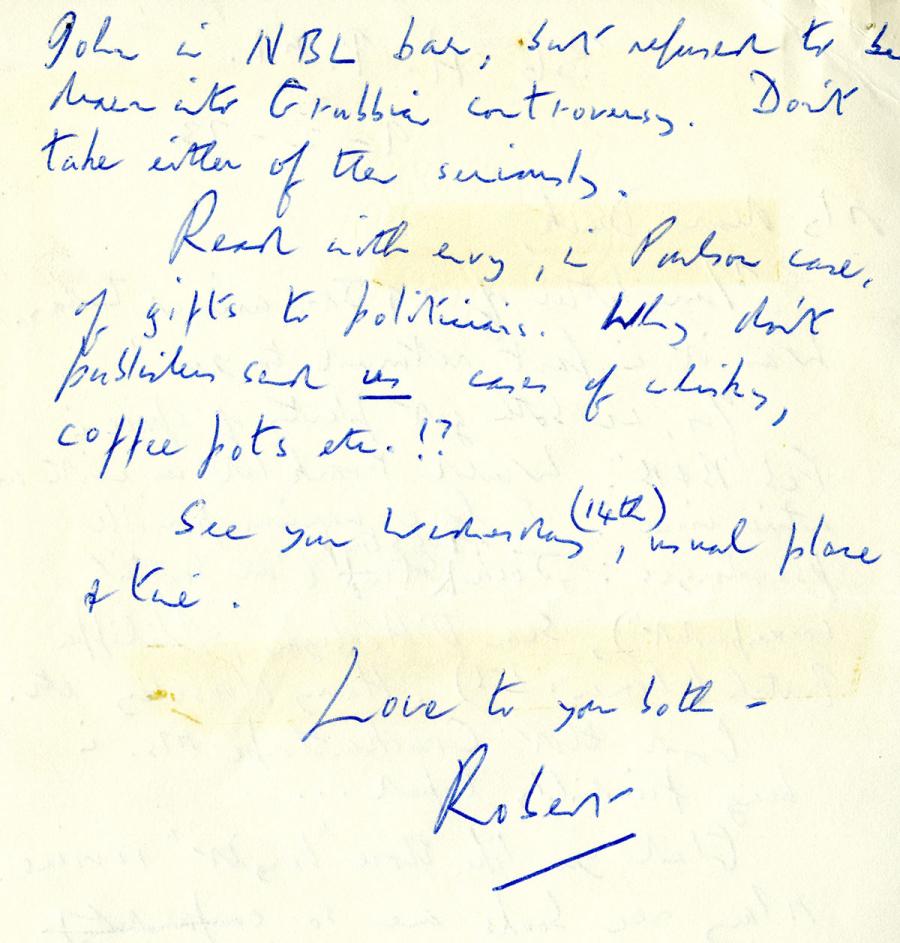 John in NBL bar, but refused to be
drawn into Grubbian controversy. Don't
take either of them seriously.
Read with envy, in Poulson case,
of gifts to politicians. Why don't
publishers send us cases of whisky,
coffee pots etc. !?
See you Wednesday (14th), usual place
& time.
Love to you both –
Robert